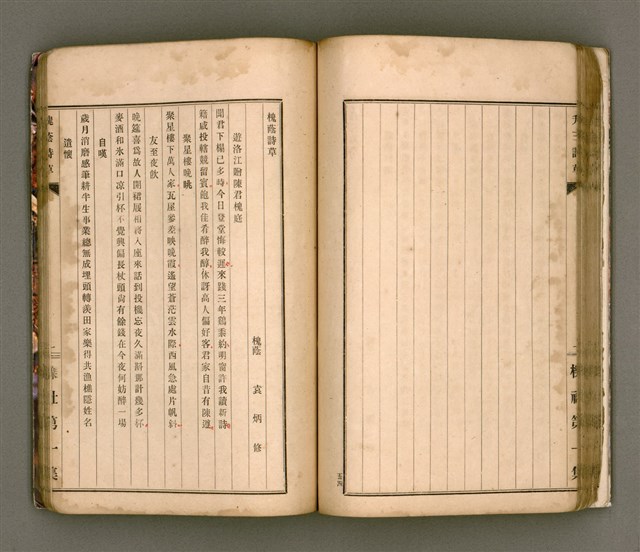 五四
槐蔭詩草
槐蔭 袁炳修
遊洛江贈陳君槐庭
聞君下榻已多時今日登堂悔較遲來踐三年鷄黍約明窗許我讀新詩
籍咸投轄競留賓飽我佳肴醉我醇休訝高人偏好客君家自昔有陳遵
聚星樓晚眺
聚星樓下萬人家瓦屋參差映晚霞遙望蒼茫雲水際西風急處片帆斜
友至夜飲
晚鐘喜爲故人開裙屐相將入座來話到投機忘夜久滿斟那計幾多杯
麥酒和氷滿口凉引杯不覺興偏長杖頭尙有餘錢在今夜何妨醉一場
自嘆
歲月消磨感筆耕半生事業總無成埋頭轉羨田家樂得共漁樵隱姓名
遣懷
槐蔭詩草
第一集